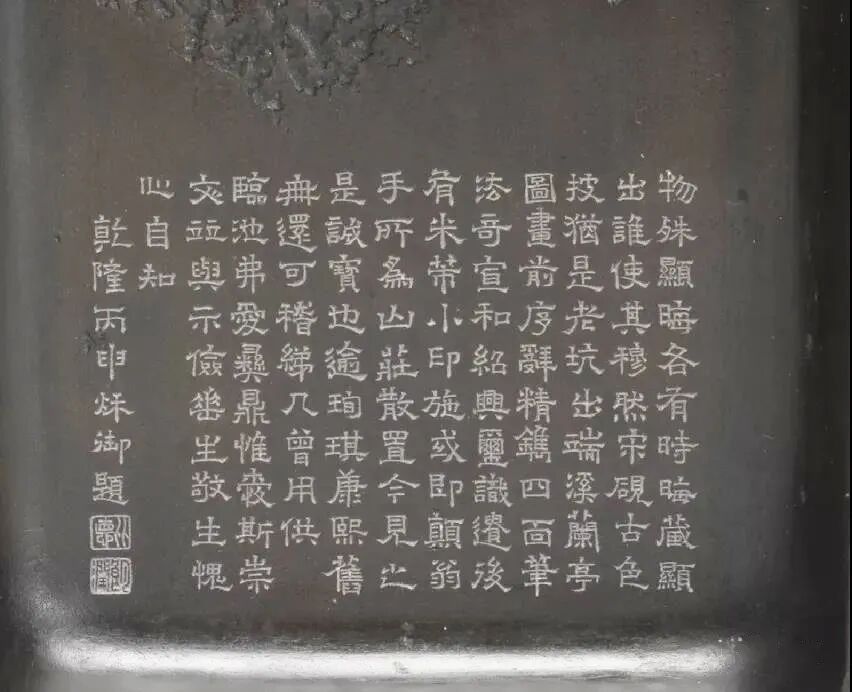 物殊顯晦各有時晦藏顯
出誰使其穆然宋硯古色
披猶是老坑出端溪蘭亭
圖畫前序辭精鐫四面筆
法奇宣和紹興璽識遺後
有米芾小印施或即顛翁
手所為山莊散置今見之
是誠寶也逾珣琪康熙舊
無還可稽綈几曾用供
臨池弗愛彝鼎惟愛斯崇
文並與示儉垂生敬生愧
心自知
乾隆丙申秌御題